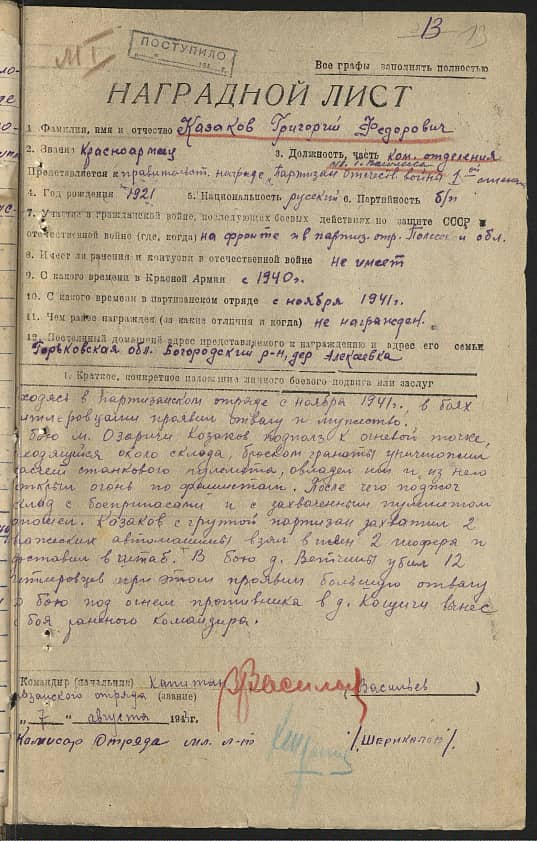 13
13
МГ
ПОСТУПИЛО
Все графы заполнять полностью
НАГРАДНОЙ ЛИСТ
1. Фамилия, имя и отчество Казаков Григорий Федорович
2. Звание Красноармеец 3. Должность, часть Ком. отделения
Представляется к правительст. награде "Партизан отечеств. война 1ой степени
4. Год рождения 1921 5. Национальность русский 6. Партийность б/п
7. Участие в гражданской войне, последующих боевых действиях по защите СССР и
отечественной войне (где, когда) на фронте и в партиз. отр. Полесск. обл.
8. Имеет ли ранения и контузии в отечественной войне не имеет
9. С какого времени в Красной Армии с 1940г.
10. С какого времени в партизанском отряде с ноября 1941г.
11. Чем ранее награжден (за какие отличия и когда) не награжден.
12. Постоянный домашний адрес представляемого к награждению и адрес его семьи
Горьковская обл. Богородский р-н, дер Алексеевка
1. Краткое, конкретное изложение личного боевого подвига или заслуг
ходясь в партизанском отряде с ноября 1941г., в боях
итлеровцами проявил отвагу и мужество.
бою м. Озаричи Казаков подполз к огневой точке,
ходящийся около склада, броском гранаты уничтожил
станкового пулемета, овладел им и из него
открыл огонь по фашистам. После чего поджог
склад с боеприпасами и с захваченным пулеметом
отошел. Казаков с группой партизан захватил 2
вражеских автомашины взял в плен 2 шофера и
доставил в штаб. В бою д. Ветчины убил 12
гитлеровцев при этом проявил большую отвагу
бою под огнем противника в д. Кощичи вынес
боя раненого командира.
Командир (начальник) Капитан Васильев (Васильев)
изанского отряда (звание)
„ 7 " августа 194 г.
Комисар Отряда мл. л-т /Шерикалов/